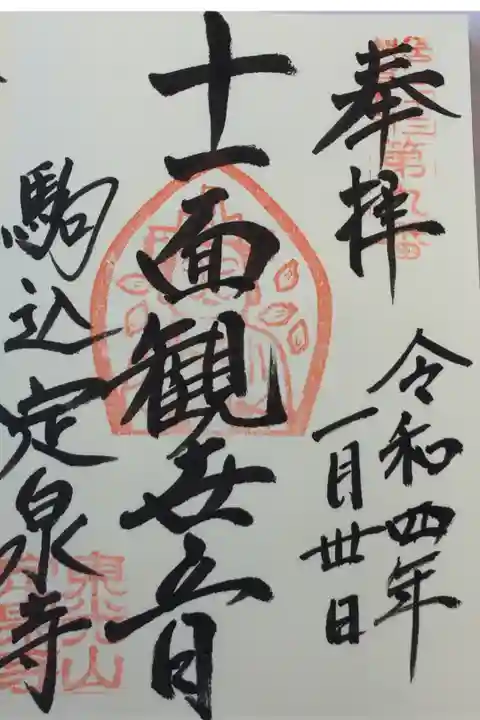 奉拝
第九番
令和四年
一月卅日
十一面観世音
駒込定泉寺
東光山
定泉寺